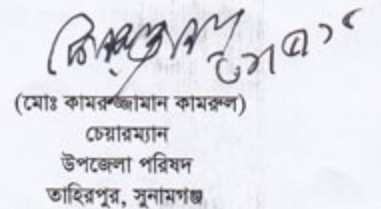 (মোঃ কামরুজ্জামান কামরুল)
চেয়ারম্যান
উপজেলা পরিষদ
তাহিরপুর, সুনামগঞ্জ